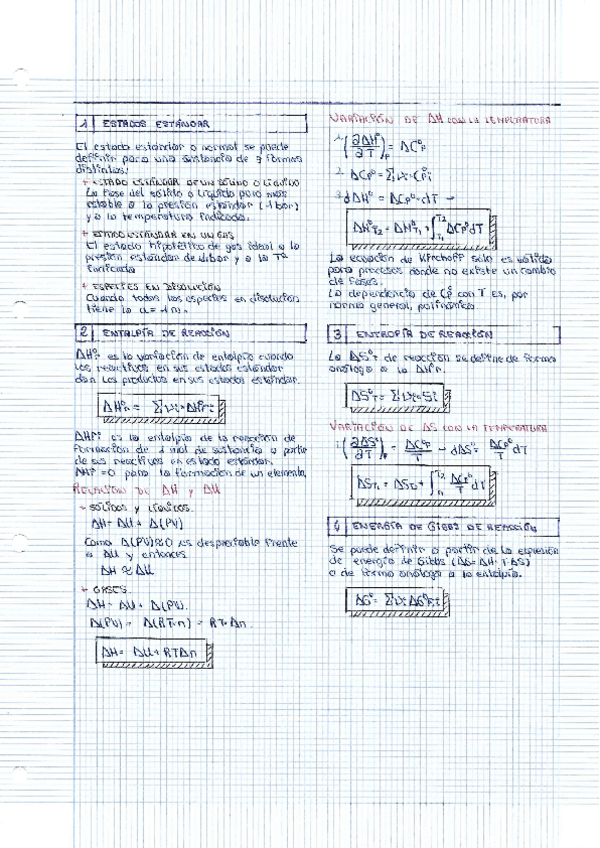 1 ESTADOS ESTÁNDAR
El estado estándar o normal se puede
definir para una sustancia de 3 formas
distintas:
+ ESTADO ESTÁNDAR DE UN SÓLIDO O LÍQUIDO
La fase del sólido o líquido puro más
estable a la presión estándar (1 bar)
y a la temperatura indicada.
+ ESTADO ESTÁNDAR EN UN GAS
El estado hipotético de gas ideal a la
presión estándar de 1 bar y a la Tª
+ ESPECIES EN DISOLUCIÓN
Cuando todas las especies en disolución
tiene la a = 1 m.
2 ENTALPÍA DE REACCIÓN
ΔHºr es la variación de entalpía cuando
los reactivos en sus estados estándar
dan los productos en sus estados estándar.
ΔHºr = Σνi·ΔHºf,i
ΔHfº es la entalpía de la reacción de
formación de 1 mol de sustancia a partir
de sus reactivos en estado estándar.
ΔHfº = 0 para la formación de un elemento.
RELACIÓN DE ΔH y ΔU
- SÓLIDOS Y LÍQUIDOS.
ΔH = ΔU + Δ(PV)
Como Δ(PV)≈0 es despreciable frente
a ΔU y entonces
ΔH ≈ ΔU
+ GASES.
ΔH = ΔU + Δ(PV).
Δ(PV) = Δ(RT·n) = RT·Δn.
ΔH = ΔU + RTΔn
VARIACIÓN DE ΔH CON LA TEMPERATURA
1. (∂ΔHº/∂T)p = ΔCºp
2. ΔCpº = Σνi·Cpºi
3. dΔHº = ΔCpº·dT →
ΔHºT2 = ΔHºT1 + ∫T1T2 ΔCpº dT
La ecuación de Kirchoff solo es válida
para procesos donde no existe un cambio
de fases.
La dependencia de Cpº con T es, por
norma general, polinómica.
3 ENTROPÍA DE REACCIÓN
La ΔSºr de reacción se define de forma
análoga a la ΔHºr.
ΔSºr = Σνi·Sºi
VARIACIÓN DE ΔS CON LA TEMPERATURA
1. (∂ΔSº/∂T)p = ΔCpº/T → dΔSº = ΔCpº/T dT
ΔST2 = ΔST1 + ∫T1T2 ΔCpº/T dT
4 ENERGÍA DE GIBBS DE REACCIÓN
Se puede definir a partir de la expresión
de energía de Gibbs (ΔG = ΔH - TΔS)
o de forma análoga a la entalpía.
ΔGº = Σνi ΔGºf,i